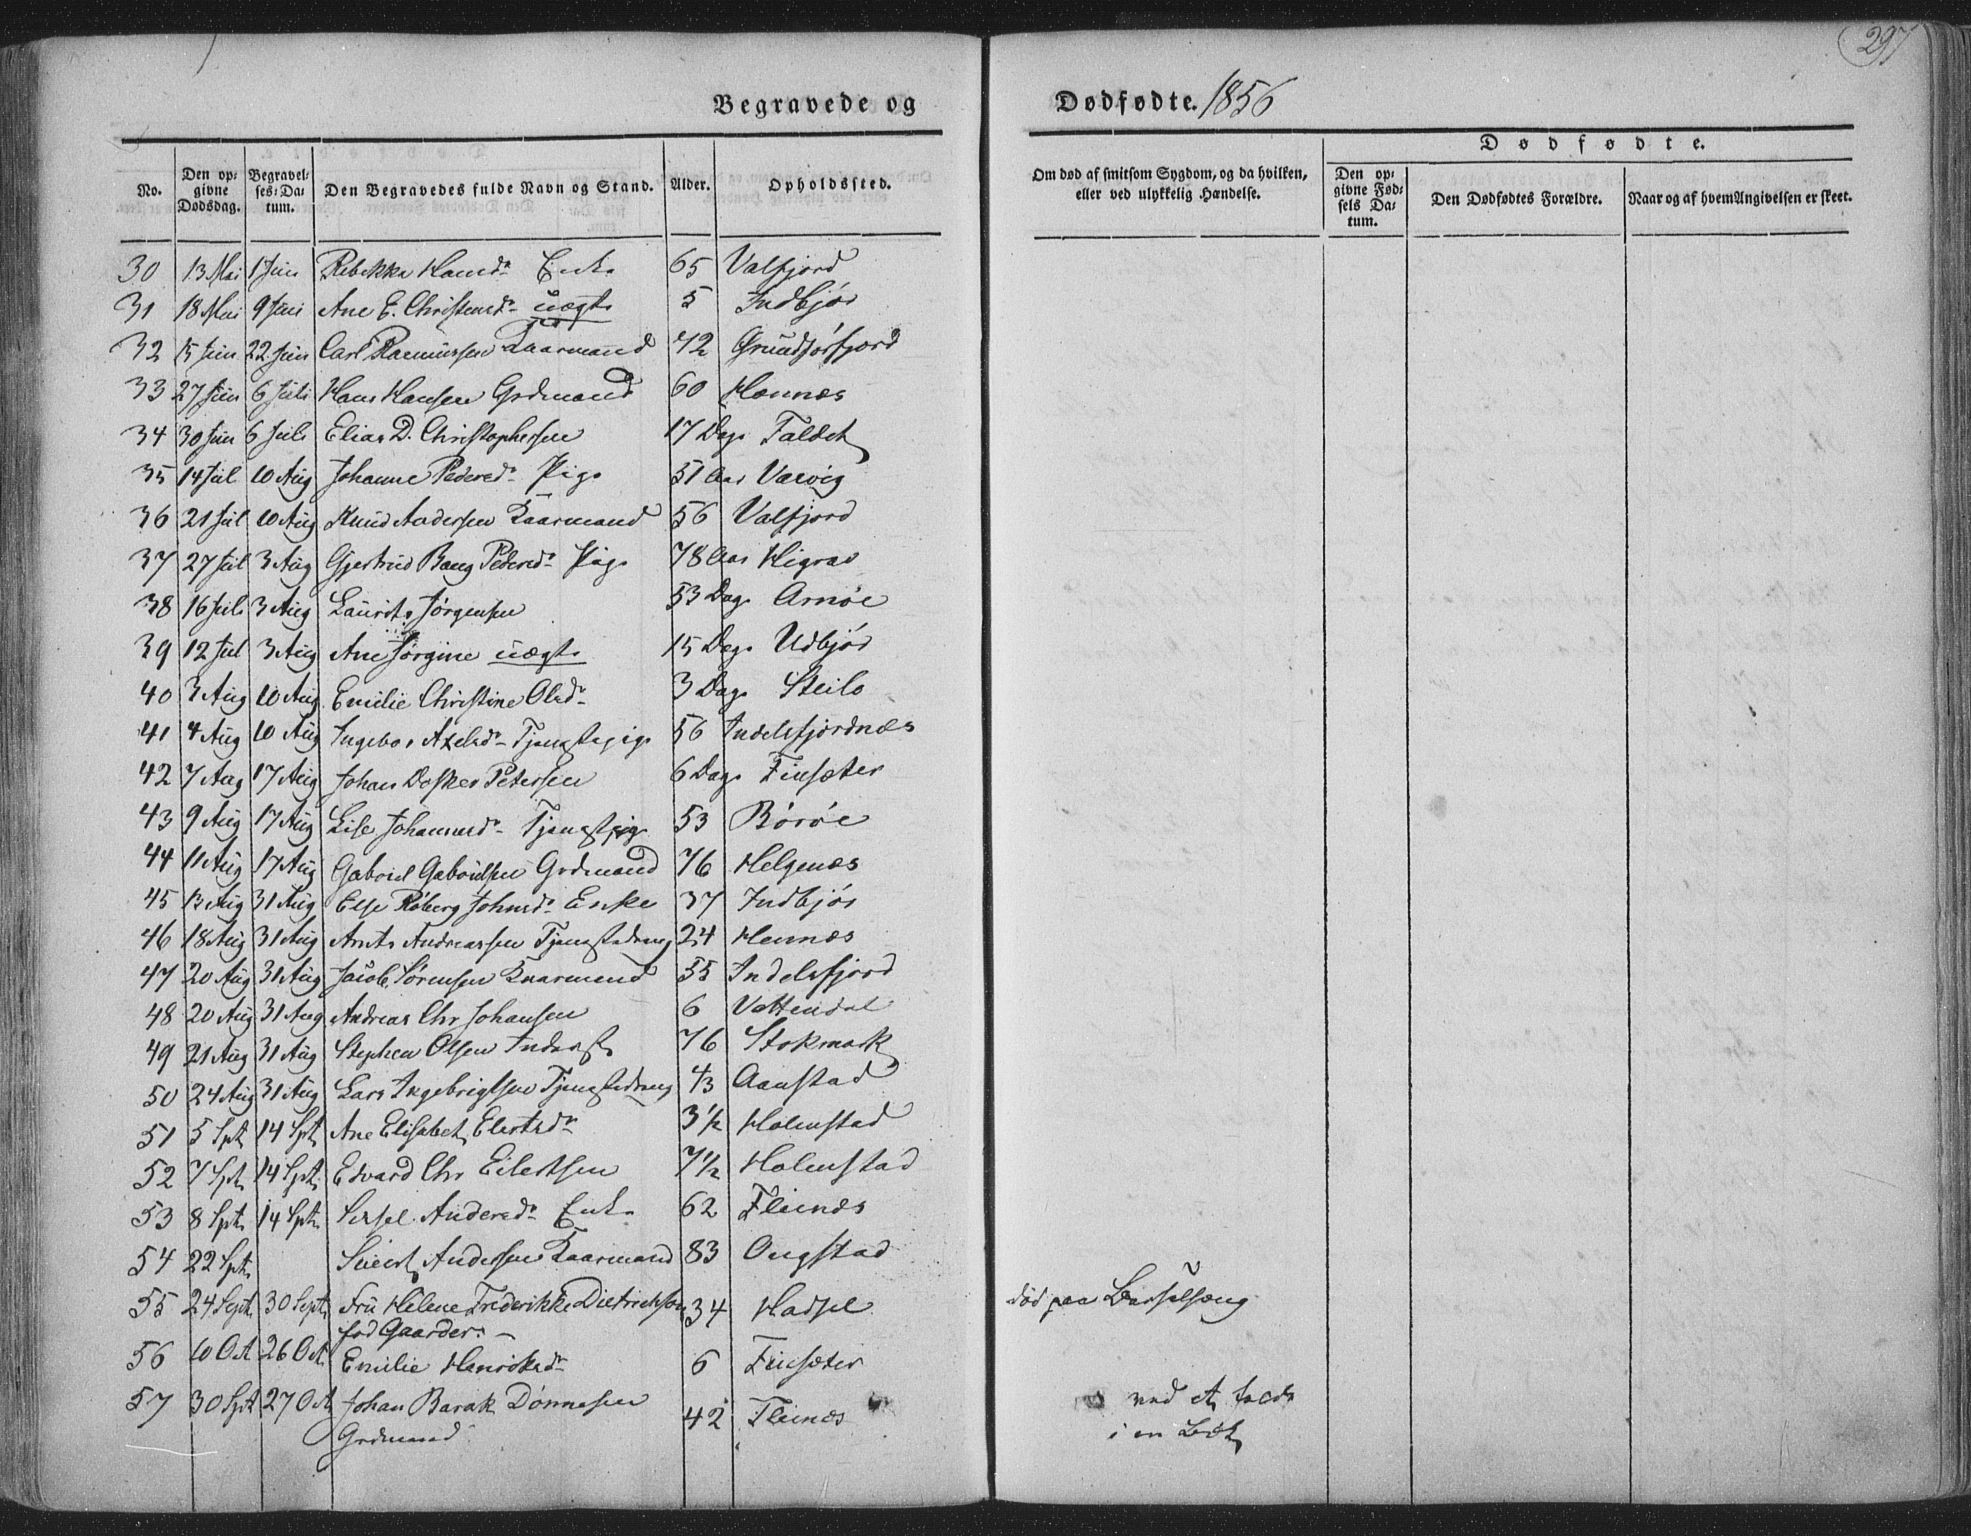 297
Begravede og Dødfødte. 1856
Dødfødte.
No. Den opgivne Dødsdag. Begravelses-Datum. Den Begravedes fulde Navn og Stand. Alder. Opholdssted. Om død af smitsom Sygdom, og da hvilken, eller ved ulykkelig Hændelse. Den opgivne Fødsels Datum. Den Dødfødtes Forældre. Naar og af hvem Angivelsen er skeet.
30 13 Mai 1 Juni Rebekka Hansdr Enke 65 Valfjord
31 18 Mai 9 Juni Ane E. Christensdr uægte 5 Indbjör
32 15 Juni 22 Juni Carl Rasmussen Kaarmand 42 Grundförfjord
33 27 Juni 6 Juli Hans Hansen Grdmand 60 Hennæs
34 30 Juni 6 Juli Elias D. Christophersen 17 Dage Faldet
35 14 Jul 10 Aug Johanne Pedersdr Pige 51 Aar Varvig
36 21 Jul 10 Aug Knud Andersen Kaarmand 56 Valfjord
37 27 Jul 3 Aug Gjertrud Bang Pedersdr Pige 78 Aar Higrav
38 16 Juli 3 Aug Laurits Jørgensen 53 Dage Arnöe
39 12 Jul 3 Aug Ane Jørgine uægte 15 Dage Udbjör
40 3 Aug 10 Aug Emilie Christine Olsdr 3 Dage Steilo
41 4 Aug 10 Aug Ingebor Axelsdr Tjenestepige 56 Indelsfjordnæs
42 7 Aug 17 Aug Johan Petersen 6 Dage Finsæter
43 9 Aug 17 Aug Lise Johannesdr Tjenestpige 53 Böröe
44 11 Aug 17 Aug Gabriel Gabrielsen Grdmand 76 Helgenæs
45 13 Aug 31 Aug Else Röberg Johnsdr Enke 37 Indbjör
46 18 Aug 31 Aug Andreassen Tjenestedreng 24 Hennæs
47 20 Aug 31 Aug Jacob Sørensen Kaarmand 55 Indelsfjord
48 20 Aug 31 Aug Andreas Chr Johansen 6 Vottendal
49 21 Aug 31 Aug Stephen Olsen Inderst 76 Stokmark
50 24 Aug 31 Aug Lars Ingebrigtsen Tjenestedreng 43 Aanstad
51 5 Spt 14 Spt Ane Elisabet Elertsdr 3½ Holmstad
52 7 Spt 14 Spt Edvard Chr Eilertsen 7½ Holmstad
53 8 Spt 14 Spt Sersel Andersdr Enke 62 Flinæs
54 22 Spt Sivert Andersen Kaarmand 83 Ongstad
55 24 Sept 30 Sept Frü Helene Frederikke Dietrichson 34 Hadsel død paa Barselseng
fød Gaarder.
56 10 Oct 26 Oct Emilie Henriksdr 6 Finsæter
57 30 Spt 27 Oct Johan Barak Dönnesen 42 Flinæs ved et fald
Grdmand i en Bæk